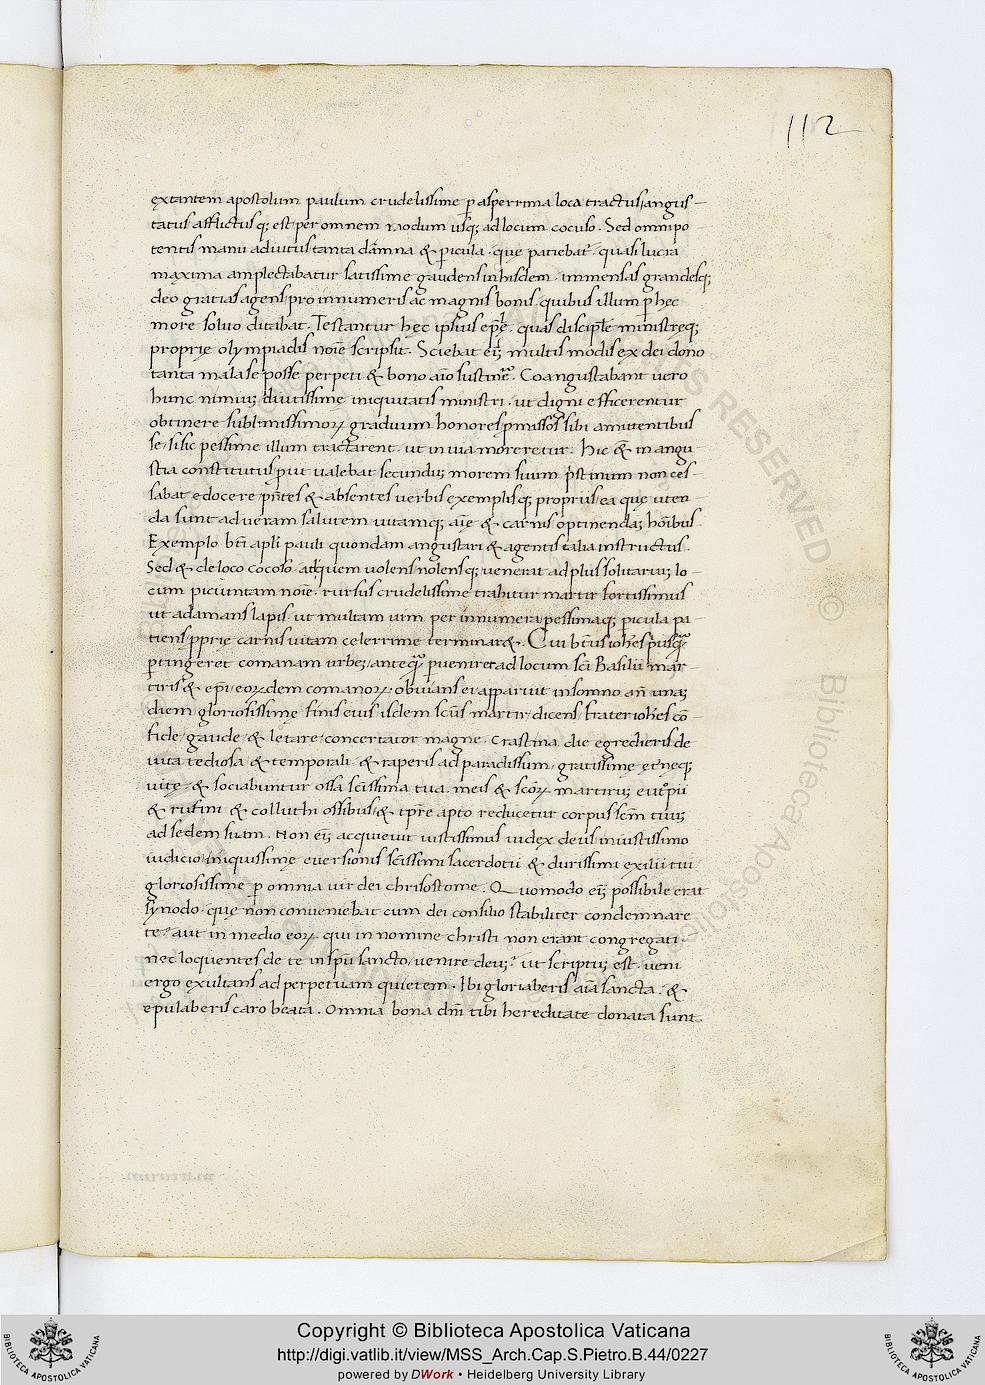 112
extantem apostolum paulum crudelissime ꝑ asperrima loca tractus, angus-
tatus afflictusq; est, per omnem modum usq; ad locum cocuso. Sed omnipo
tentis manu adiutus, tanta dãmna & ꝑicula. quę patiebat᷑. quasi lucra
maxima amplectabatur satissime gaudens in hisdem. immensas grandesq;
deo gratias agens, pro innumeris ac magnis bonis. quibus illum ꝑ hęc
more solito ditabat. Testantur hęc ipsius epłę. quas disciplę ministręq;
proprię olympiadis noīe scripsit. Sciebat eī; multis modis ex dei dono
tanta mala se posse perpeti & bono aīo sustinere. Coangustabant uero
hunc nimiū; diuitissimę iniquitatis ministri. ut digni efficerentur
obtinere sublimissimoꝝ graduum honores ꝓmissos sibi a mittentibus
se, si sic pessime illum tractarent. ut in uia moreretur. Hic & in angu
stia constitutus, ꝓut ualebat secundū; morem suum p̄stinum non ces-
sabat edocere p̄ntes & absentes uerbis exemplisq; propriis, ea quę uten-
da sunt ad ueram salutem uitamq; aīę & carnis optinenda; hoībus.
Exemplo bt̄i apłi pauli quondam angustari & agentis talia instructus.
Sed & de loco cocoso. ad quem uolens nolensq; uenerat ad plus solitariū; lo-
cum piciuntam noīe. rursus crudelissime trahitur martir fortissimus
ut adamans lapis. ut multam uim per innumera, pessimaq; ꝑicula pa
tiens, ꝓprię carnis uitam celerrime terminar&. Cui bt̄us ioh̄es priusquā
ꝑtingeret comanam urbē; antequā ꝑueniret ad locum sc̄i Basilii mar-
tiris & epī eoꝝdem comanoꝝ. obuians ei apparuit in somno añ unā;
diem gloriosissimę finis eius isdem sc̄us martir, dicens. frater ioh̄es cō-
fide, gaude & letare, concertator magne. Crastina die egredieris de
uita tediosa & temporali. & raperis ad paradissum, gratissimę eternęq;
uitę, & sociabuntur ossa sc̄issima tua. meis & sc̄oꝝ martirū; eutropii
& rufini & colluthi ossibus, & tp̄re apto reducetur corpus sc̄m tuū;
ad sedem suam. Non eī; acquieuit iustissimus iudex deus, iniustissimo
iudicio, iniquissimę euersionis sc̄issimi sacerdotii & durissimi exilii tui,
gloriosissime ꝑ omnia uir dei chrisostome. Quomodo eī; possibile erat
synodo. quę non conueniebat cum dei consilio stabiliter condemnare
te? aut in medio eoꝝ. qui in nomine christi non erant congregati.
nec loquentes de te in spū sancto, uenire deū;? ut scriptū; est. ueni
ergo exultans ad perpetuam quietem. Ibi gloriaberis aīa sancta. &
epulaberis caro beata. Omnia bona dñi tibi hereditate donata sunt.
Copyright © Biblioteca Apostolica Vaticana
http://digi.vatlib.it/view/MSS_Arch.Cap.S.Pietro.B.44/0227
powered by DWork • Heidelberg University Library